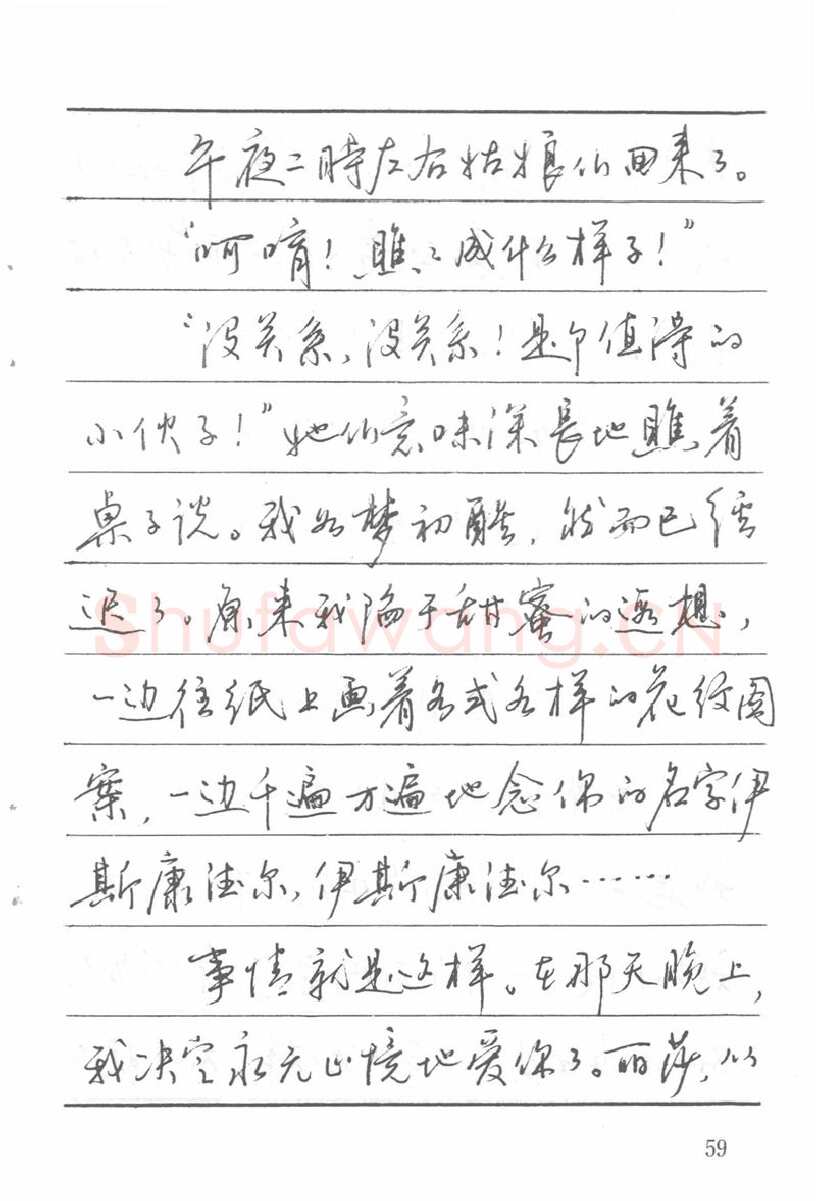 午夜二時左右姑娘们回来了。
“呵唷！瞧瞧成什么样子！”
“没关系，没关系！是个值得的
小伙子！”她们意味深長地瞧着
桌子说。我如梦初醒，然而已经
迟了。原来我陷于甜蜜的遐想，
一边往纸上画着各式各样的花纹图
案，一边千遍万遍地念你的名字伊
斯康德尔，伊斯康德尔……
事情就是这样。在那天晚上，
我决定永无止境地爱你了。丽莎，从
59
Shufawang.CN